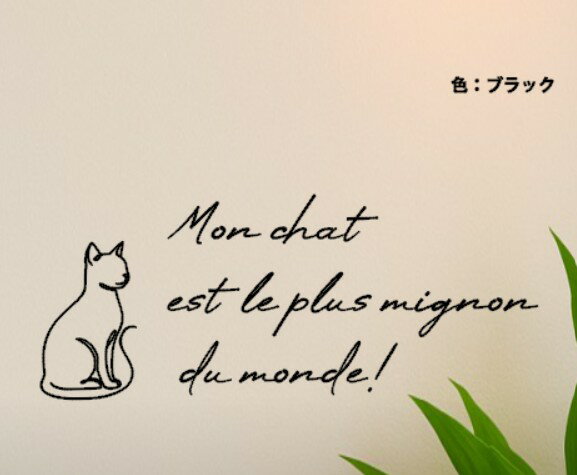 色：ブラック
Mon chat
est le plus mignon
du monde!